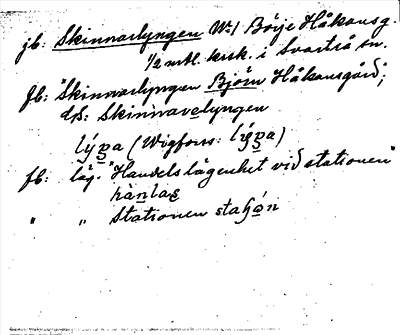 jb: Skinnarlyngen No 1 Börje Håkansg.
1/2 mtl krsk. i Svartrå sn.
fb: "Skinnarlyngen Björn Håkansgård";
ds: Skinnavelyngen
lýŋa (Wigforss: lýŋa)
fb: läg. "Handelslägenhet vid stationen"
hànlas
" " Stationen staʃón